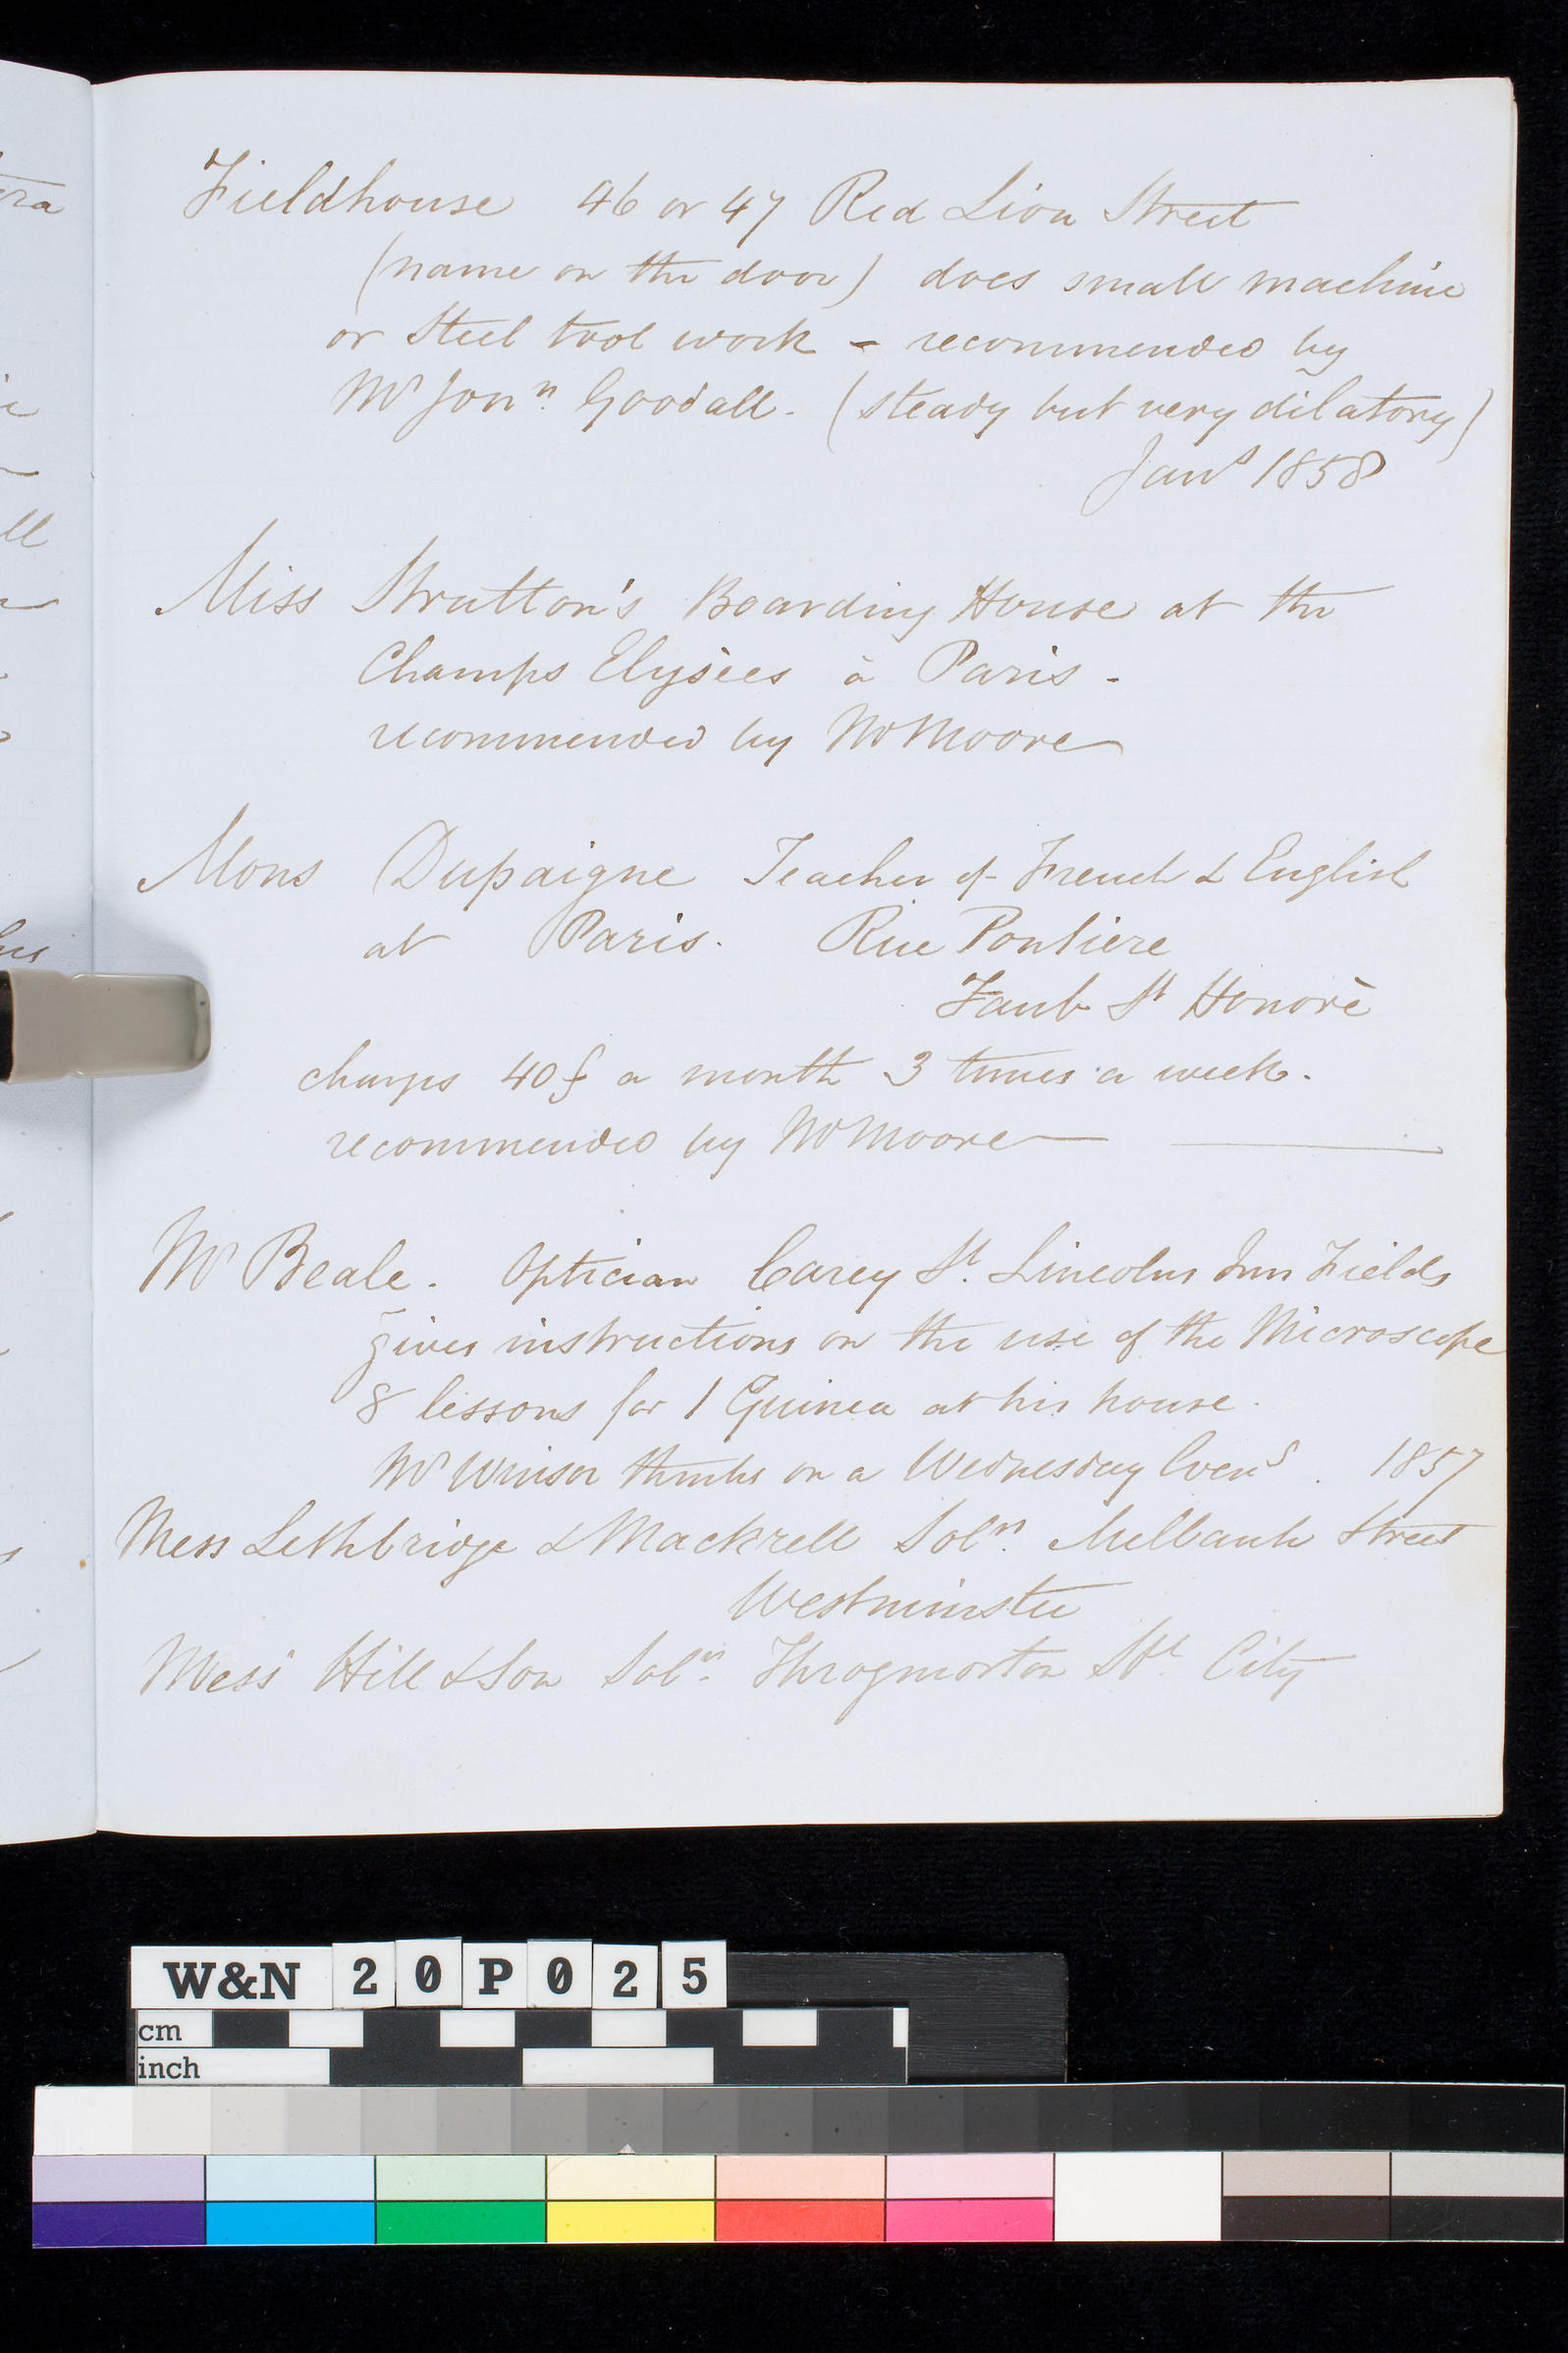 Fieldhouse 46 or 47 Red Lion Street
(name on the door) does small machine
or Steel tool work - recommended by
Mr Jonn. Goodall. (steady but very dilatory)
Jany 1858
Miss Strutton's Boarding House at the
Champs Elysèes à Paris -
recommended by Mr Moore
Mons Dupaigne Teacher of French & English
at Paris. Rue Pontiere
Faub St Honorè
charges 40f a month 3 times a week.
recommended by Mr Moore
Mr Beale. Optician Carey St. Lincolns Inn Fields
gives instructions on the use of the Microscope
8 lessons for 1 Guinea at his house.
Mr Winsor thinks on a Wednesday Eveng. 1857
Mess Lethbridge & Mackrell Solrs. Millbank Street
Westminster
Messrs Hill & Son Solrs. Throgmorton Stt. City
W&N 20P025
cm
inch